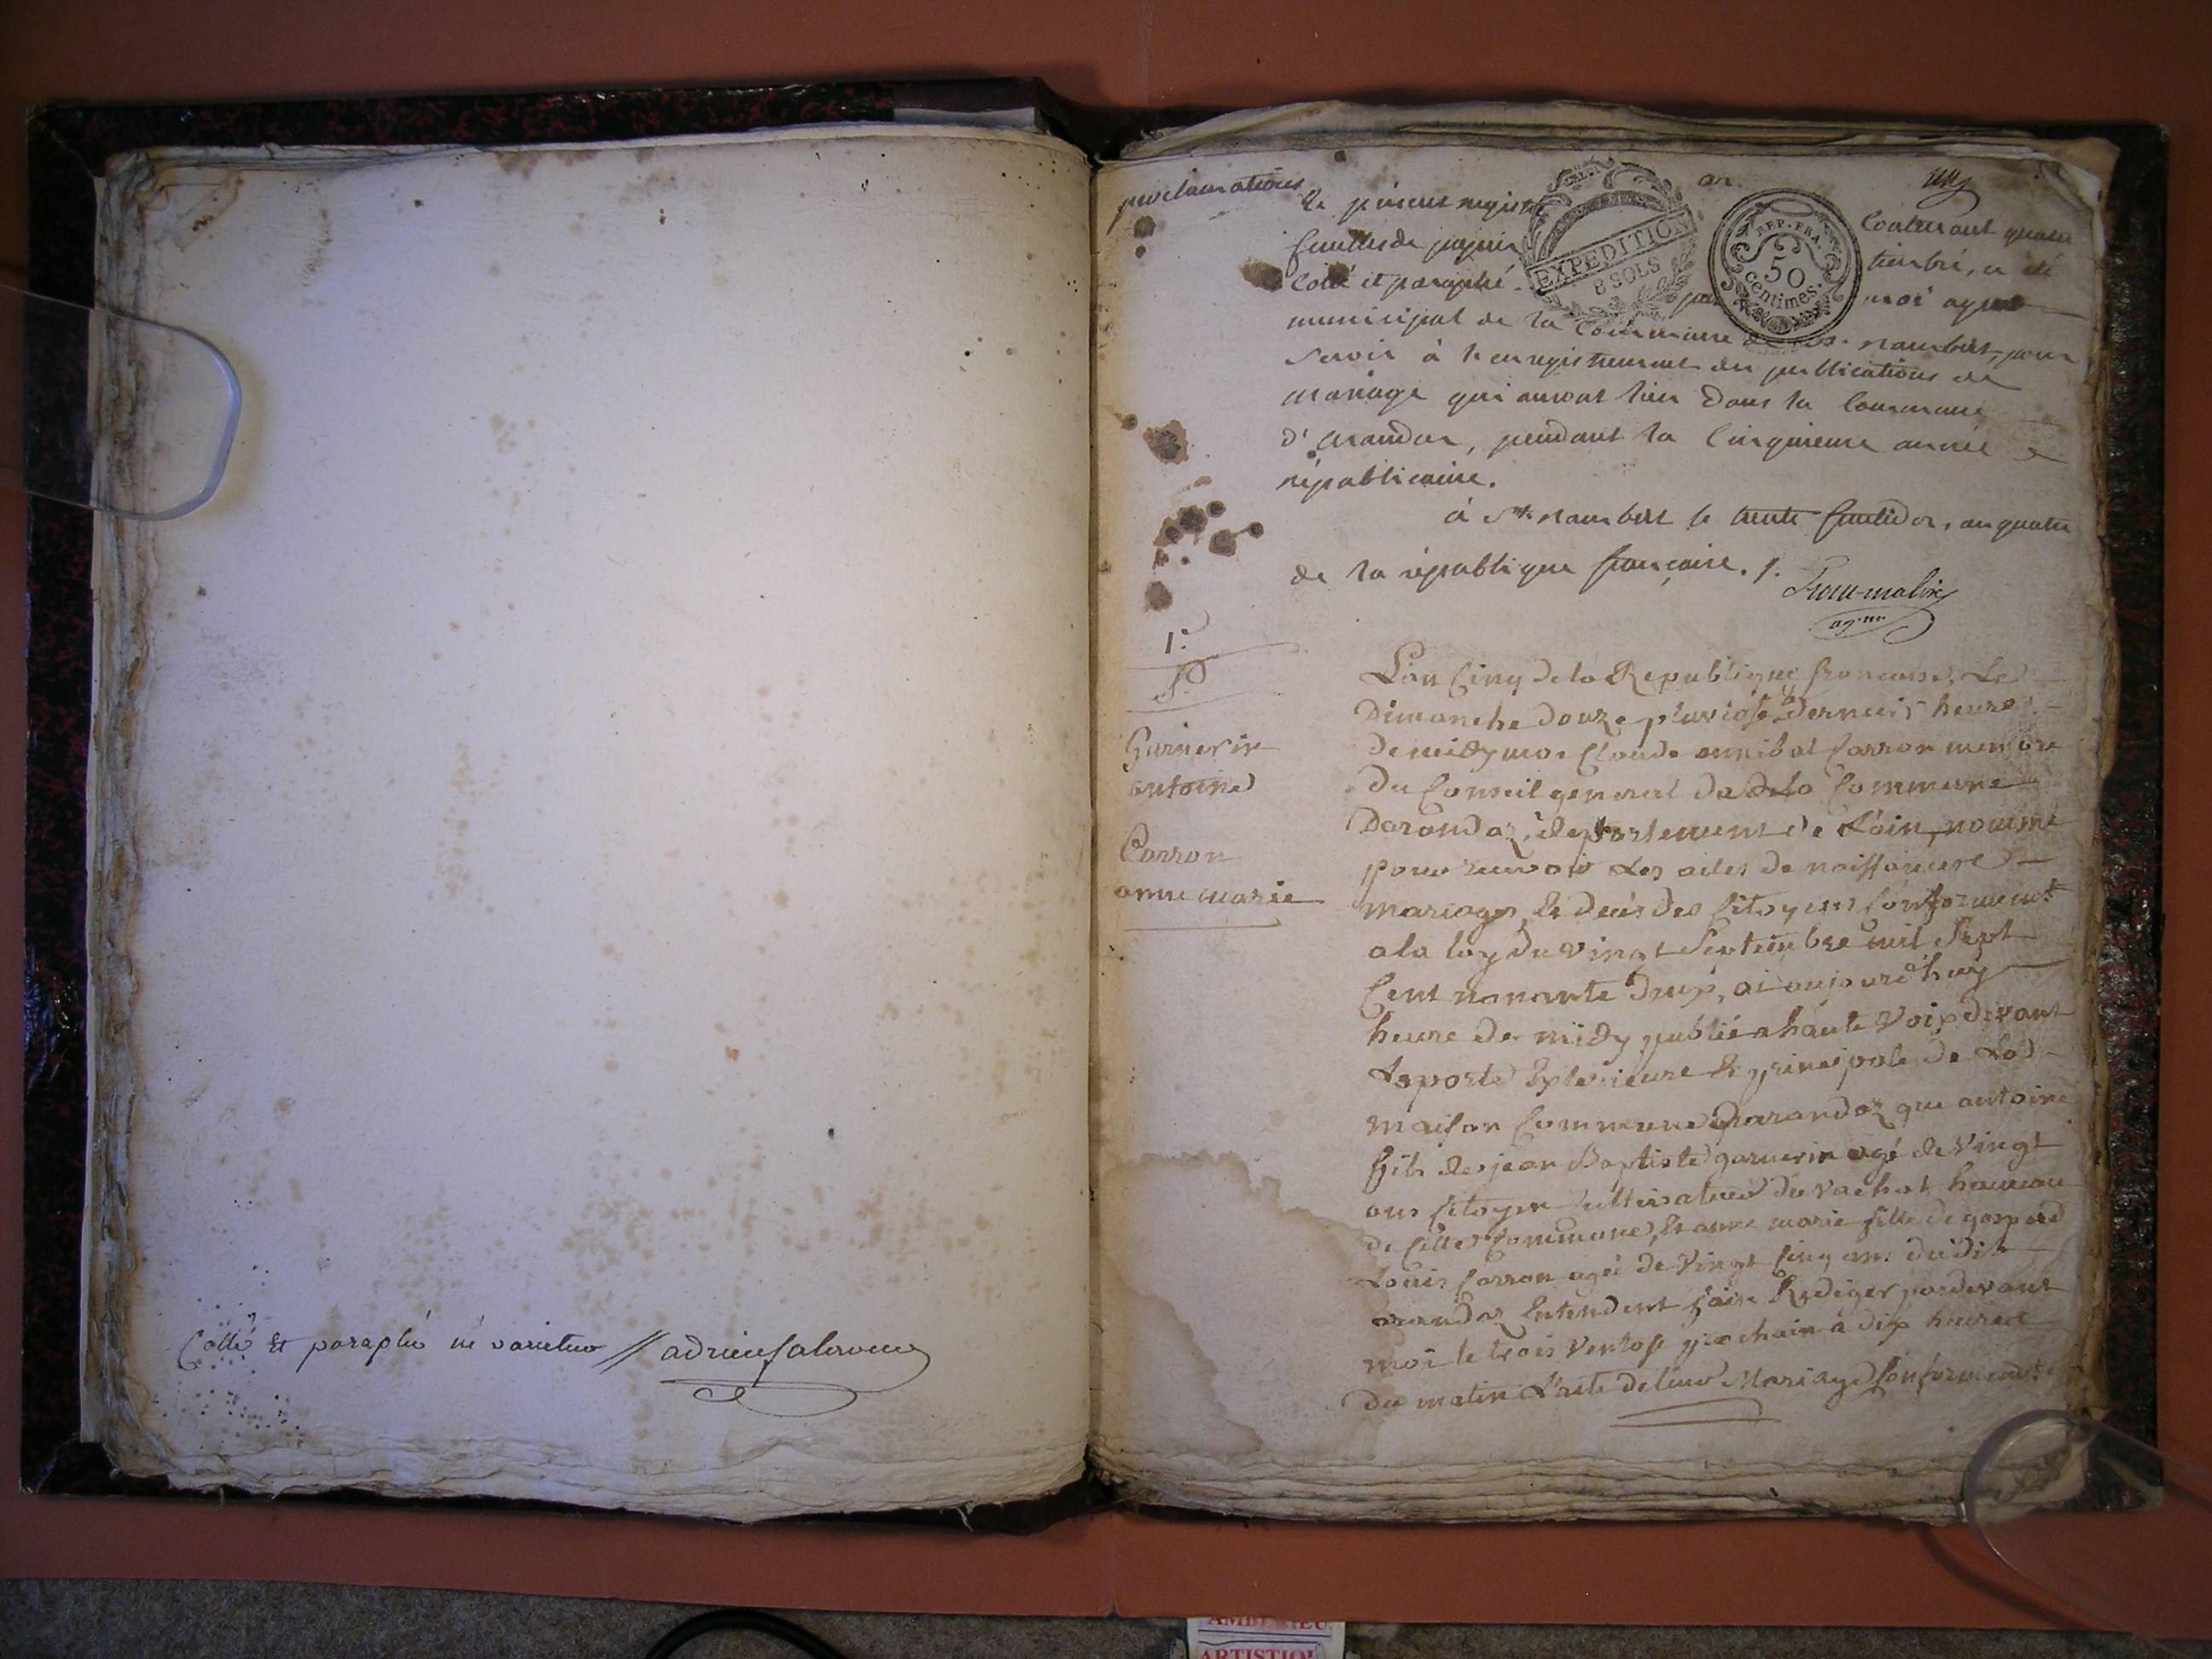 Cotté et paraphé ne varietur // adrien salavoine
proclamations
an.
un
Le présent registre contenant quatre
feuilles de papier timbré, a été
Coté et paraphé par moi agent
municipal de la Commune de St. rambert, pour
servir à l'enregistrement des publications de
mariage qui auront lieu dans la Commune
d'arandas, pendant la Cinquieme année
républicaine.
EXPEDITION
8 SOLS
REP. FRA.
50
centimes.
à St. rambert le trente fructidor, an quatre
de la république française. /.
ag. m.
1.
P
Garnerin
antoine
Carron
anne marie
L'an Cinq de la Republique francaise, Le
Dimanche douze pluviose dernier heure
de midy moi Claude annibal Carron membre
du Conseil general de de la Commune
Darandaz, departement de L'ain, nommé
pour recevoir Les actes de naissance
mariages, & deces des Citoyens Conformement
a la loy du vingt Septembre mil Sept
Cent nonante deux, ai aujourdhuy
heure de midy publié a haute Voix devant
La porte Exterieure & principale de La
maison Commune Darandaz que antoine
fils de jean Baptiste garnerin agé de Vingt
ans Citoyen Cultivateur du vachat hameau
de Cette Commune, & anne marie fille de gaspard
Louis Carron agée de Vingt Cinq ans dudit
arandaz Entendent faire Rediger pardevant
moi le trois Ventose prochain a dix heures
du matin L'acte de leur Mariage Conformement
ARTISTIQU